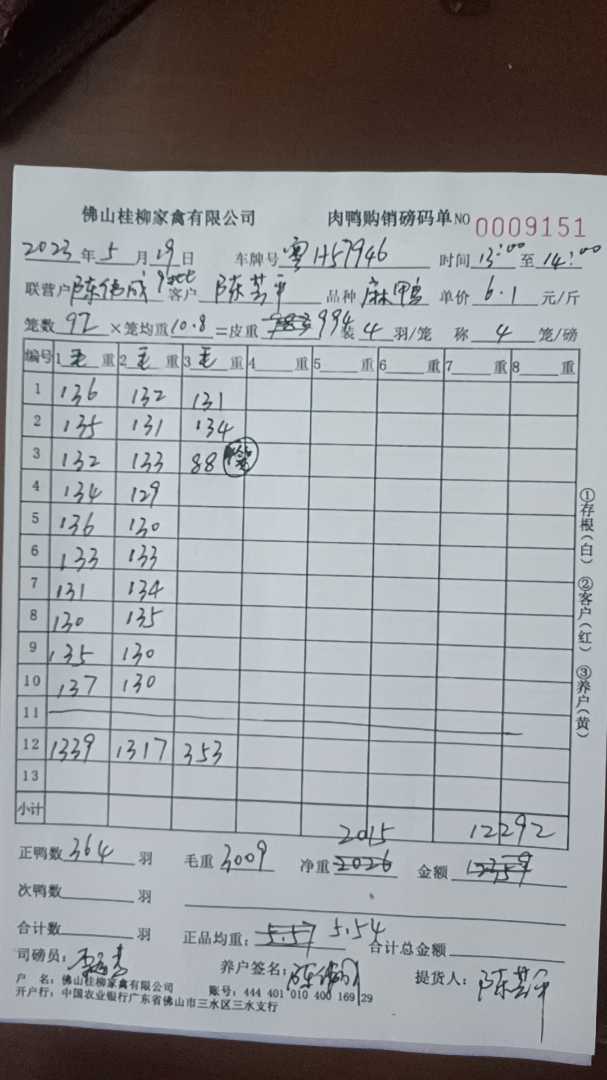 佛山桂柳家禽有限公司 肉鸭购销磅码单 NO 0009151
2023年5月19日 车牌号 粤H57946 时间 13:00 至 14:00
联营户 陈伟成 客户 陈芸平 品种 麻鸭 单价 6.1 元/斤
笼数 92 ×笼均重 10.8 =皮重 994 装 4 羽/笼 称 4 笼/磅
编号 1 毛 重 2 毛 重 3 毛 重 4 重 5 重 6 重 7 重 8 重
1 136 132 131
2 135 131 134
3 132 133 88
4 134 129
5 136 130
6 133 133
7 131 134
8 130 135
9 135 130
10 137 130
11
12 1339 1317 353
13
小计
2015 12292
正鸭数 364 羽 毛重 3009 净重 2026 金额
次鸭数 羽
合计数 羽 正品均重: 5.57 5.54 合计总金额
司磅员: 养户签名: 陈伟成 提货人: 陈芸平
户 名: 佛山桂柳家禽有限公司 账号: 444 401 010 400 169 29
开户行: 中国农业银行广东省佛山市三水区三水支行
①存根(白) ②客户(红) ③养户(黄)